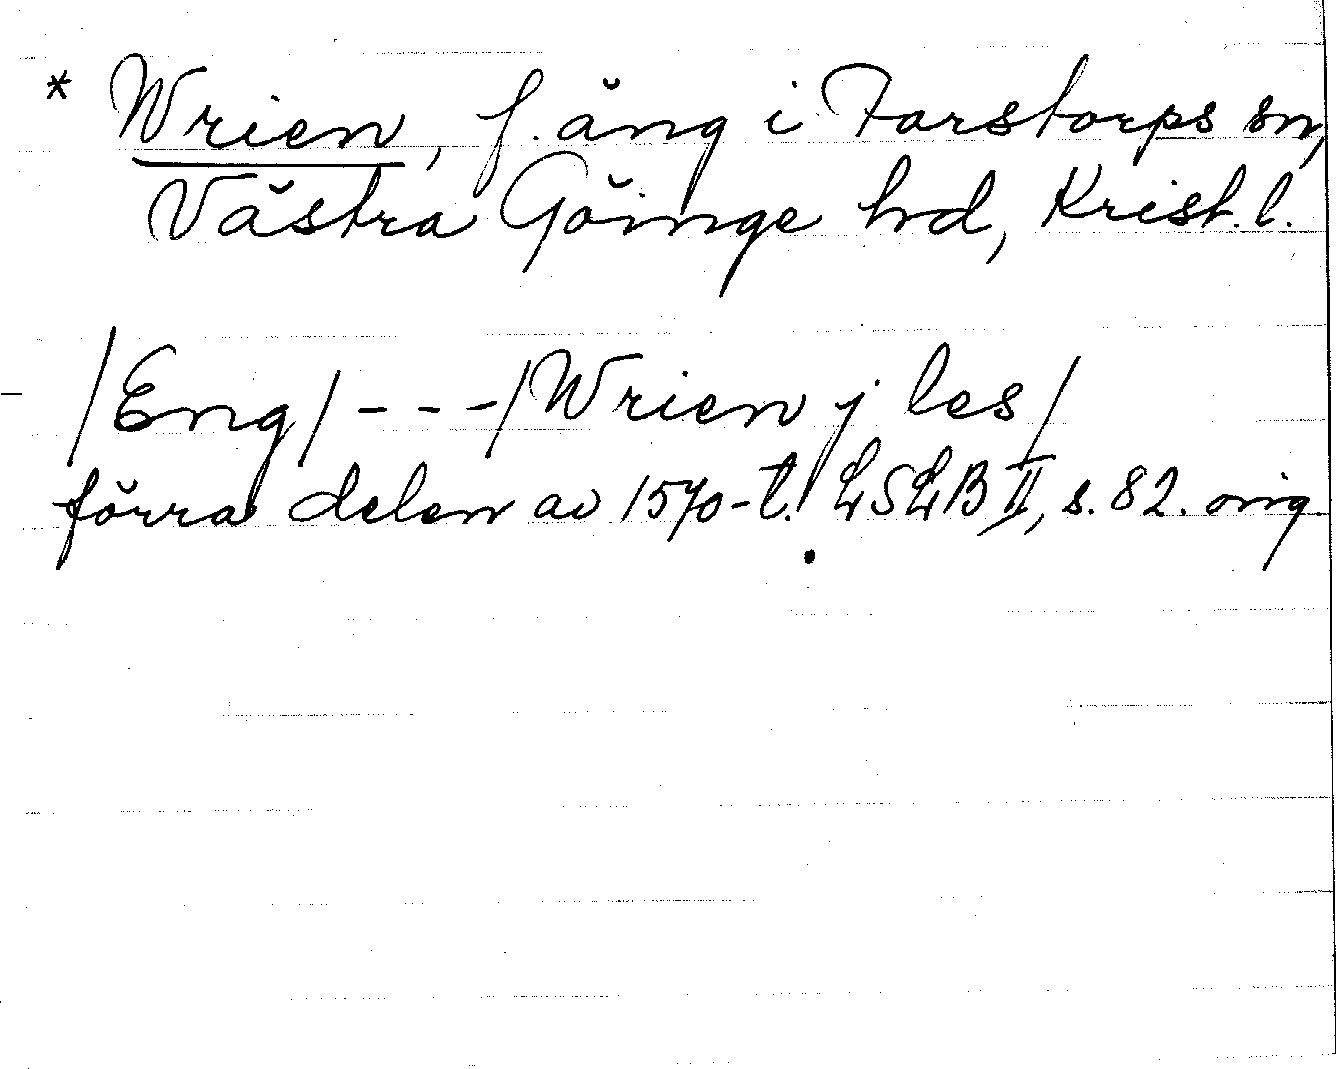 * Wrien, f. äng i Farstorps sn,
Västra Göinge hd, Krist. l.
/Eng/ - - - /Wrien j les/
förra delen av 1570-t. LSLB II, s. 82. orig.